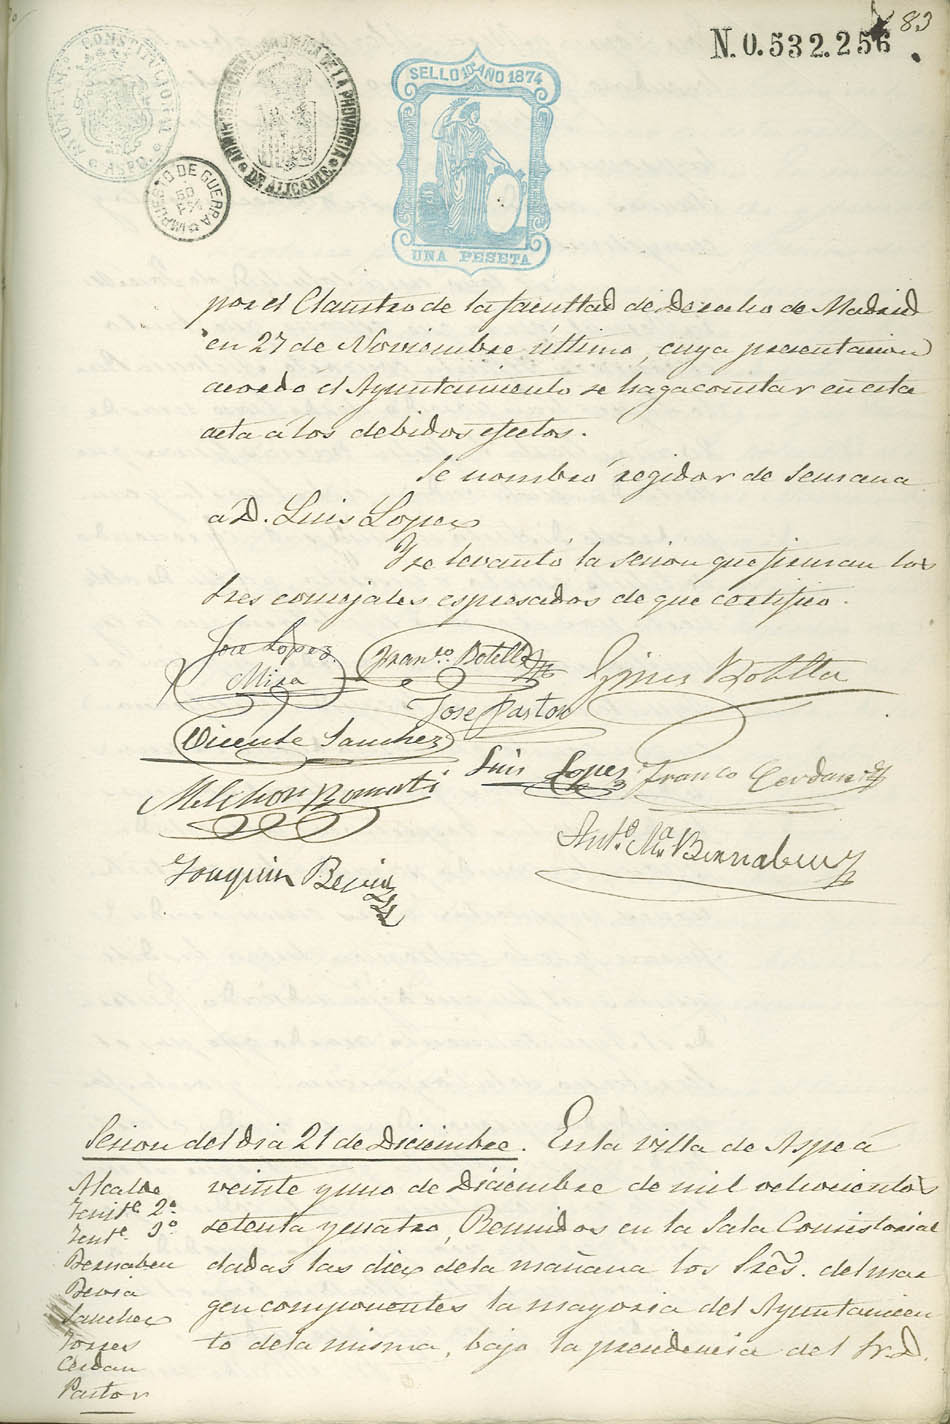 83
N. 0.532.256
AYUNTAMTO CONSTITUCIONAL
ASPE
ADMINISTRACION ECONOMICA DE LA PROVINCIA
DE ALICANTE
IMPUESTO DE GUERRA
SELLO 10º AÑO 1874
UNA PESETA
por el Claustro de la facultad de Derecho de Madrid
en 27 de Noviembre último, cuya presentacion
acordó el Ayuntamiento se haga constar en esta
acta á los debidos efectos.
Se nombró regidor de Semana
á D. Luis Lopez
Y se levantó la sesion que firman los
tres concejales espresados de que certifico.
Jose Lopez
Mira
Franco Botella
Gines Botella
Jose Pastor
Vicente Sanchez
Luis Lopez
Franco Cerdan
Melchor Bonmati
Anto Ma Bernabeu
Joaquin Bevia
Sesion del dia 21 de Diciembre. En la villa de Aspe á
veinte y uno de Diciembre de mil ochocientos
setenta y cuatro, Reunidos en la Sala Consistorial
dadas las diez de la mañana los Sres. del mar
gen componentes la mayoria del Ayuntamien
to de la misma, bajo la presidencia del Sr. D.
Alcalde
Tente 2º
Tente 3º
Bernabeu
Bevia
Sanchez
Torres
Cerdan
Pastor